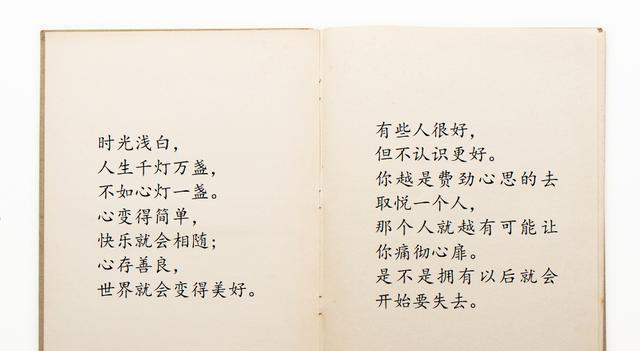 时光浅白，
人生千灯万盏，
不如心灯一盏。
心变得简单，
快乐就会相随；
心存善良，
世界就会变得美好。
有些人很好，
但不认识更好。
你越是费劲心思的去
取悦一个人，
那个人就越有可能让
你痛彻心扉。
是不是拥有以后就会
开始要失去。